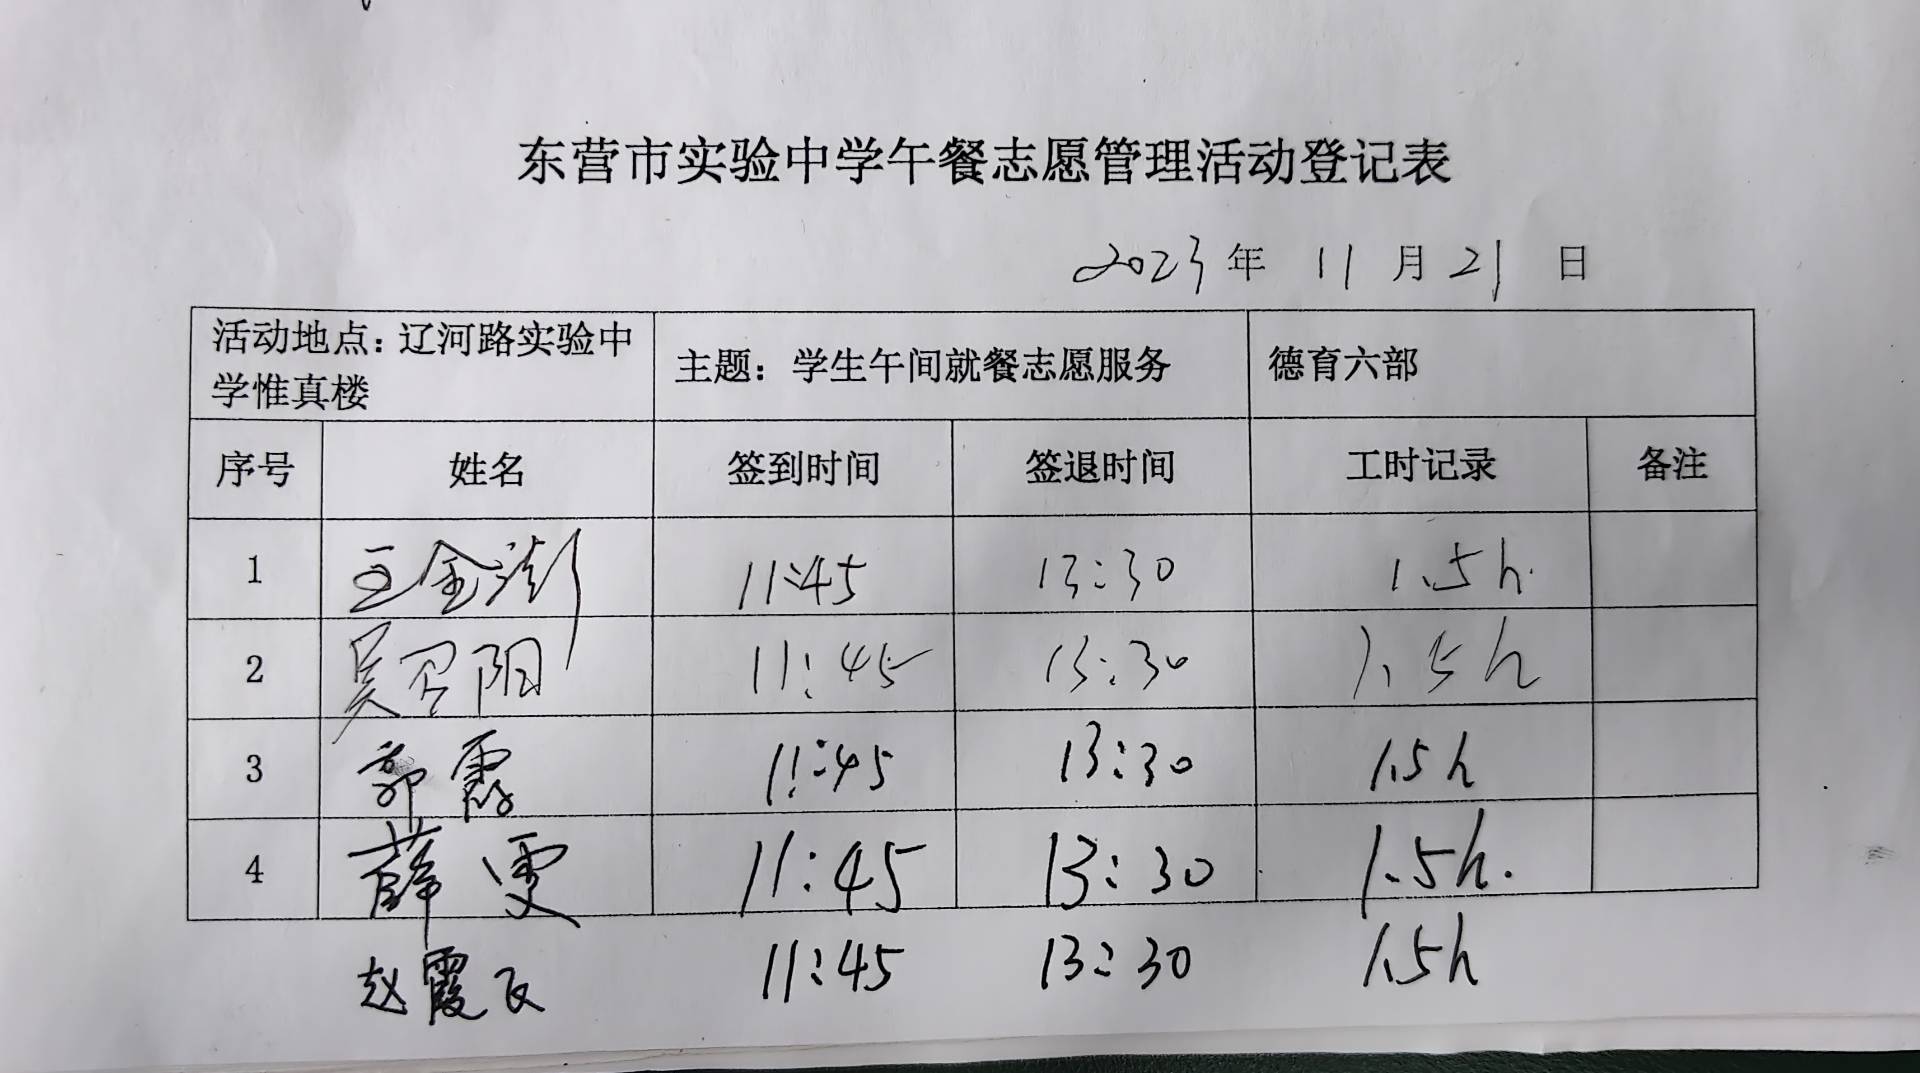 东营市实验中学午餐志愿管理活动登记表
2023年 11月21日
活动地点：辽河路实验中
学惟真楼
主题：学生午间就餐志愿服务
德育六部
序号 姓名 签到时间 签退时间 工时记录 备注
1 王金澎 11:45 13:30 1.5h.
2 吴召阳 11:45 13:30 1.5h
3 郭霞 11:45 13:30 1.5h
4 薛雯 11:45 13:30 1.5h.
赵霞 11:45 13:30 1.5h